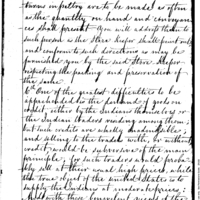 turns in peltry are to be made as often
as the quantity on hand and conveyan-
ces shall present You will address them to
such person as the Store Keeper shall
and conform to such directions as may be
furnished you by the said Store Keeper
respecting the packing and preservation of
the same.
6th One of the greatest difficulties to be
apprehended is the demand of goods on
credit, either by the Indians themselves or
the Indian traders residing among them;
but such credits are wholly inadmissible;
and selling to the traders with, or without
credit would be subversive of the main
principle; for such traders would proba-
bly sell at their usual high prices, while
the true object of the United States is to
supply the Indians at moderate prices:
And with these benevolent views of the